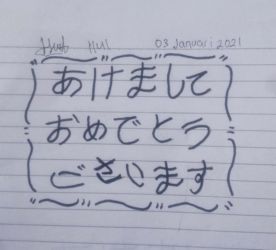 03 Januari 2021
あけまして
おめでとう
ございます